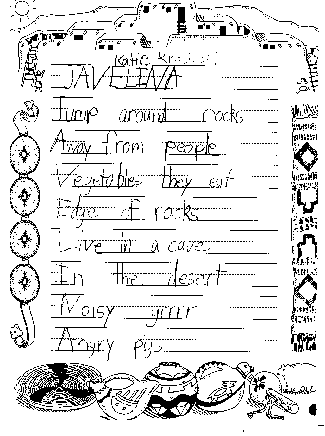 Katie
JAVELINA
Jump around rocks
Away from people
Vegetables they eat
Edge of rocks
Live in a cave
In the desert
Noisy grrrr
Angry pigs